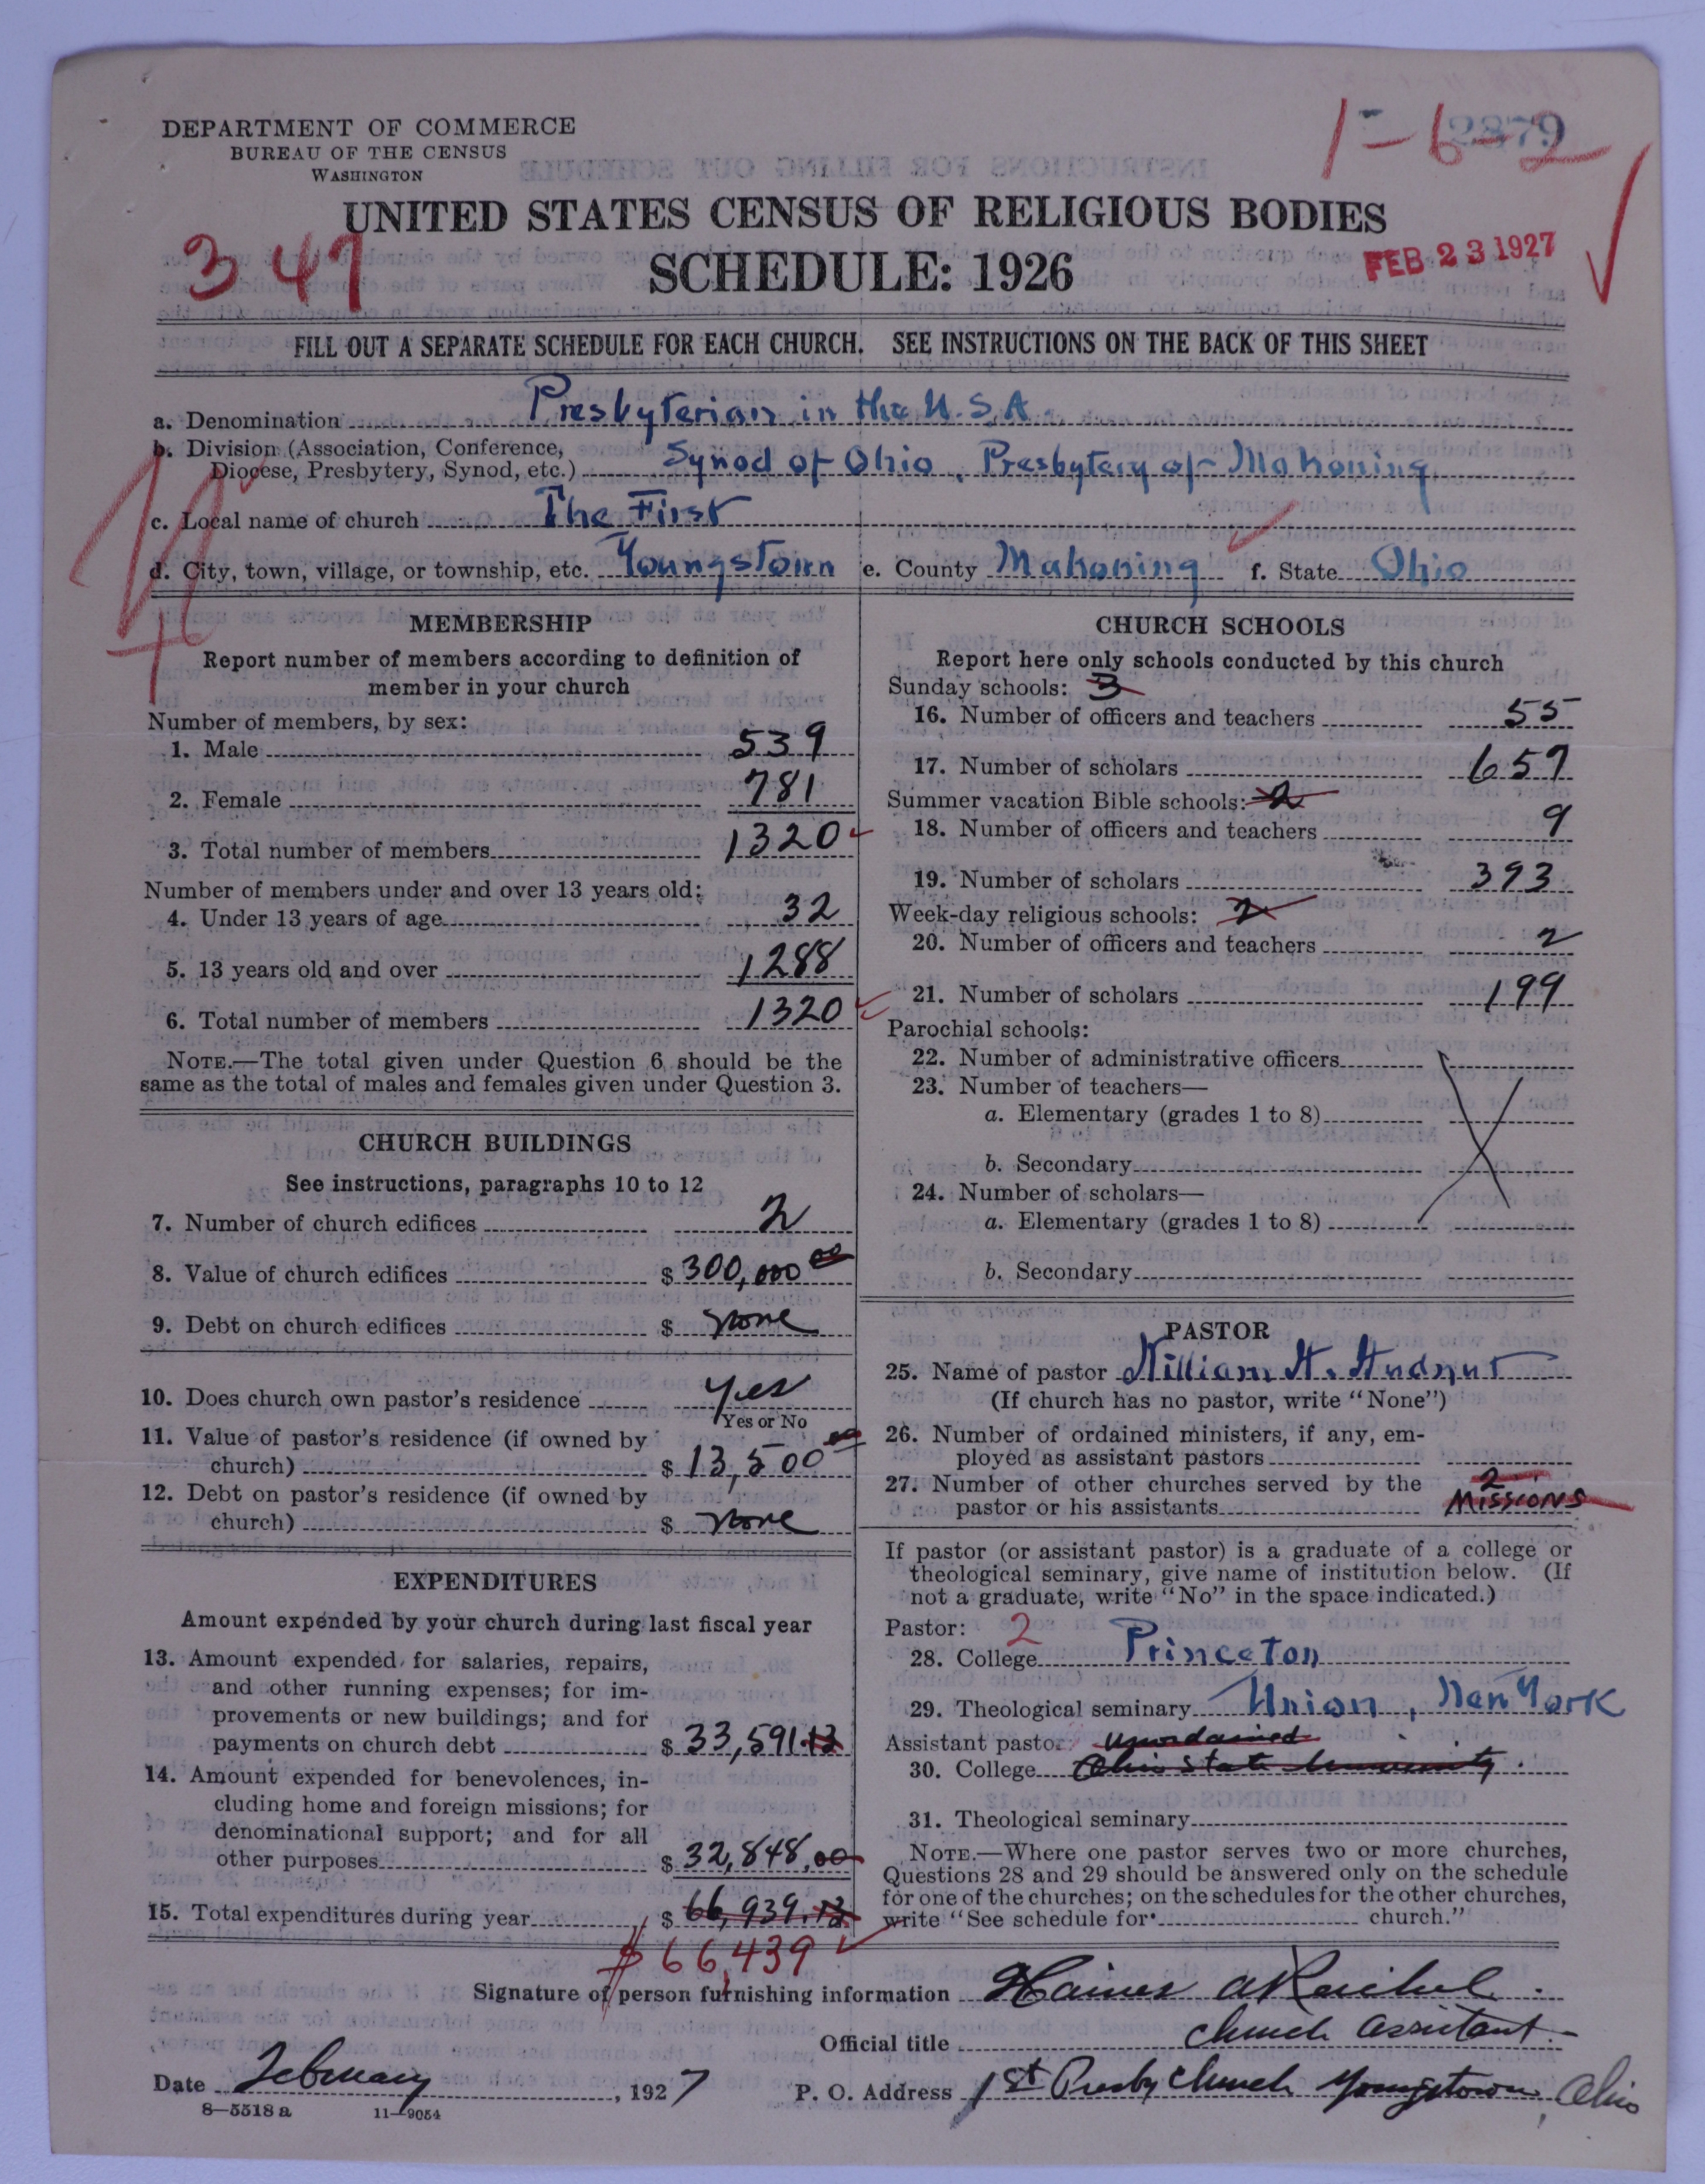 DEPARTMENT OF COMMERCE
BUREAU OF THE CENSUS
WASHINGTON
2879
1-6-2
UNITED STATES CENSUS OF RELIGIOUS BODIES
347
SCHEDULE: 1926
FEB 23 1927
FILL OUT A SEPARATE SCHEDULE FOR EACH CHURCH. SEE INSTRUCTIONS ON THE BACK OF THIS SHEET
a. Denomination Presbyterian in the U.S.A.
b. Division (Association, Conference,
Diocese, Presbytery, Synod, etc.) Synod of Ohio, Presbytery of Mahoning
c. Local name of church The First
d. City, town, village, or township, etc. Youngstown e. County Mahoning f. State Ohio
MEMBERSHIP
Report number of members according to definition of
member in your church
Number of members, by sex:
1. Male 539
2. Female 781
3. Total number of members 1320
Number of members under and over 13 years old:
4. Under 13 years of age 32
5. 13 years old and over 1288
6. Total number of members 1320
NOTE.—The total given under Question 6 should be the
same as the total of males and females given under Question 3.
CHURCH BUILDINGS
See instructions, paragraphs 10 to 12
7. Number of church edifices 2
8. Value of church edifices $ 300,000 00
9. Debt on church edifices $ none
10. Does church own pastor's residence yes
Yes or No
11. Value of pastor's residence (if owned by
church) $ 13,500 00
12. Debt on pastor's residence (if owned by
church) $ none
EXPENDITURES
Amount expended by your church during last fiscal year
13. Amount expended for salaries, repairs,
and other running expenses; for im-
provements or new buildings; and for
payments on church debt $ 33,591.13
14. Amount expended for benevolences, in-
cluding home and foreign missions; for
denominational support; and for all
other purposes $ 32,848.00
15. Total expenditures during year $ 66,939.13
$66,439
CHURCH SCHOOLS
Report here only schools conducted by this church
Sunday schools: 3
16. Number of officers and teachers 55
17. Number of scholars 657
Summer vacation Bible schools: 2
18. Number of officers and teachers 9
19. Number of scholars 393
Week-day religious schools: 2
20. Number of officers and teachers 2
21. Number of scholars 199
Parochial schools:
22. Number of administrative officers
23. Number of teachers—
a. Elementary (grades 1 to 8)
b. Secondary
24. Number of scholars—
a. Elementary (grades 1 to 8)
b. Secondary
PASTOR
25. Name of pastor William H. Hudnut
(If church has no pastor, write "None")
26. Number of ordained ministers, if any, em-
ployed as assistant pastors
27. Number of other churches served by the
pastor or his assistants 2 Missions
If pastor (or assistant pastor) is a graduate of a college or
theological seminary, give name of institution below. (If
not a graduate, write "No" in the space indicated.)
Pastor: 2
28. College Princeton
29. Theological seminary Union, New York
Assistant pastor: unordained
30. College Ohio State University.
31. Theological seminary
NOTE.—Where one pastor serves two or more churches,
Questions 28 and 29 should be answered only on the schedule
for one of the churches; on the schedules for the other churches,
write "See schedule for church."
Signature of person furnishing information Haines A Reichel
Official title Church Assistant
Date February, 1927 P. O. Address 1st Presby Church Youngstown, Ohio
8—5518 a 11—9054